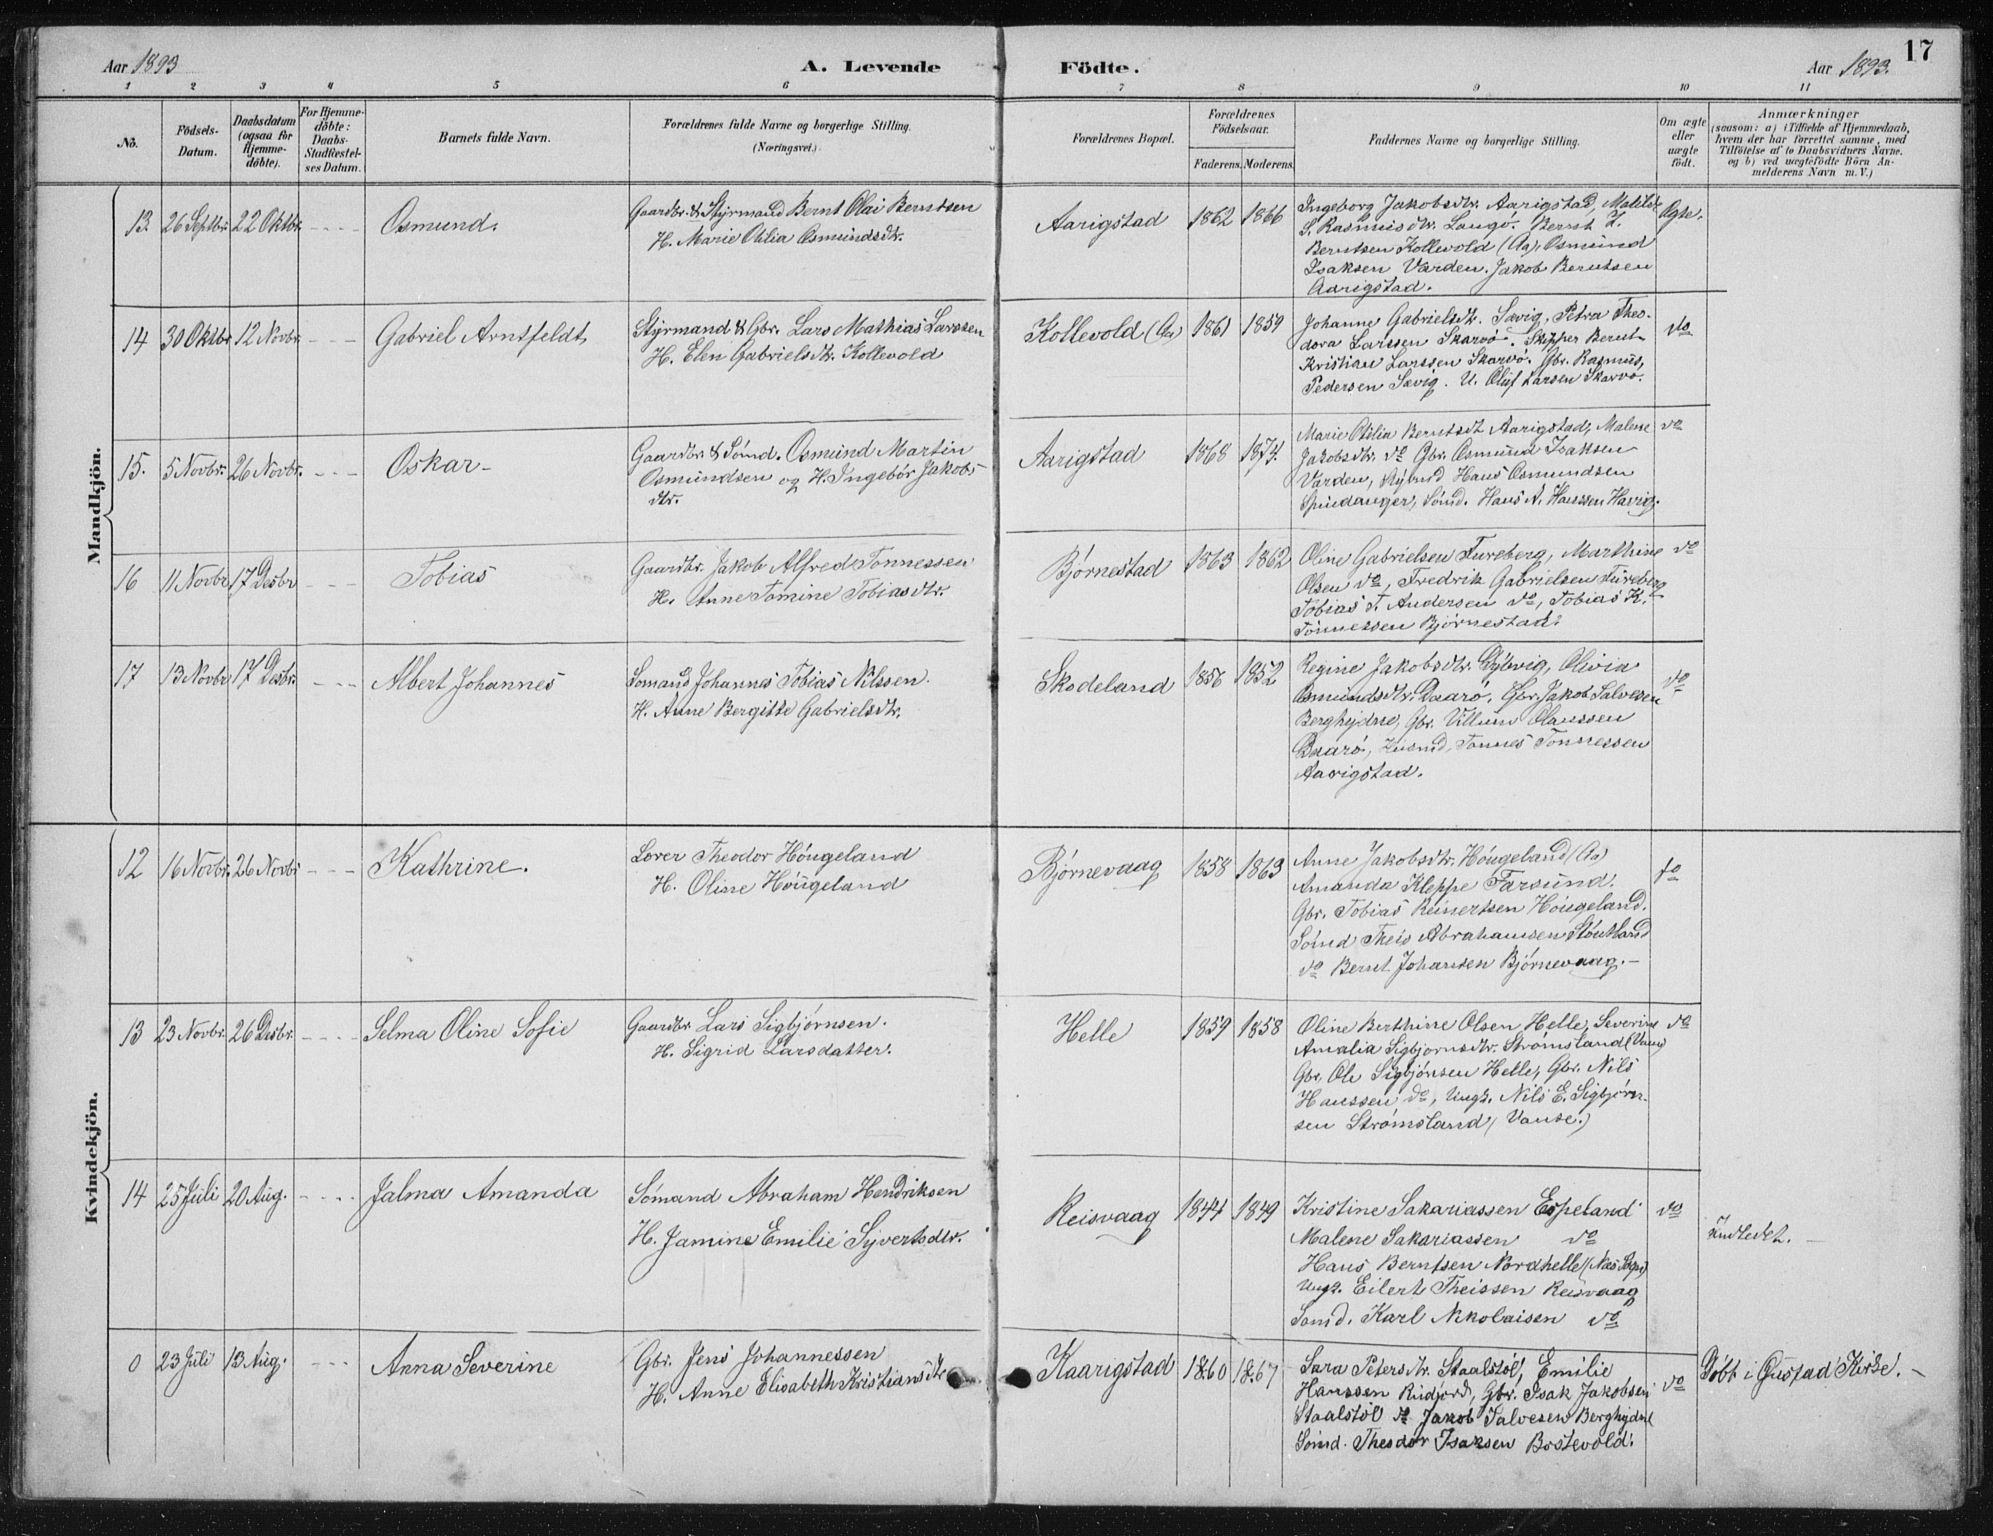 17
Aar 1893 A. Levende Födte. Aar 1893.
1 2 3 4 5 6 7 8 9 10 11
No. Födsels-Datum. Daabsdatum (ogsaa for Hjemmedöbte). For Hjemmedöbte: Daabs-Stadfæstelses Datum. Barnets fulde Navn. Forældrenes fulde Navne og borgerlige Stilling. (Næringsvei.) Forældrenes Bopæl. Forældrenes Födselsaar. Faderens. Moderens. Faddernes Navne og borgerlige Stilling. Om ægte eller uægte födt. Anmærkninger (saasom: a) i Tilfælde af Hjemmedaab, hvem der har forrettet samme, med Tilföielse af to Daabsvidners Navne, og b) ved uægtefödte Börn Anmelderens Navn m. V.)
Mandkjön.
13. 26 Septbr. 22 Oktbr. Osmund.
Gaardbr. & Styrmand Bernt Olai Berntsen
H. Marie Otilia Osmundsdtr.
Aarigstad 1862 1866
Ingeborg Jakobsdtr. Aarigstad,
S. Rasmusdtr. Langö. Bernt
Berntsen Kollevold (Aa), Osmund
Isaksen Varden. Jakob Berntsen
Aarigstad.
Ægte.
14 30 Oktbr. 12 Novbr. Gabriel Arntfeldt
Styrmand & Gbr. Lars Mathias Larssen
H. Elen Gabrielsdtr. Kollevold
Kollevold (Aa) 1861 1859
Johanne Gabrielsdtr. Sævig, Petra Theo-
dora Larssen Skarvö. Skipper Bernt
Kristian Larssen Skarvö. Gbr. Rasmus
Pedersen Sævig. U. Oluf Larsen Skarvö.
do
15. 5 Novbr. 26 Novbr. Oskar
Gaardbr. & Sömd. Osmund Martin
Osmundsen og H. Ingebör Jakobs-
dtr.
Aarigstad 1868 1874.
Marie Otilia Berntsdt Aarigstad, Malene
Jakobsdtr. do Gbr. Osmund Isaksen
Varden, Hans Osmundsen
Spindanger, Sömd. Hans A. Hanssen Havig.
do
16 11 Novbr 17 Desbr Tobias
Gaardbr. Jakob Alfred Tonnessen
H. Anne Tomine Tobiasdtr.
Bjørnestad 1863 1862
Oline Gabrielsen Fureberg, Marthine
Olsen do, Fredrik Gabrielsen Fureberg
Tobias T. Andersen do, Tobias K.
Tönnessen Bjørnestad.
do
17 13 Novbr 17 Desbr. Albert Johannes
Somand Johannes Tobias Nilssen.
H. Anne Bergitte Gabrielsdtr.
Skodeland 1856 1852
Regine Jakobsdtr. Dybvig, Olivia
Osmundsdtr. Daarö. Gbr. Jakob Salvesen
Berghejdne, Gbr. Villum Olaussen
Daarö, Tonnes Tonnessen
Aarigstad.
do
Kvindekjön.
12 16 Novbr. 26 Novbr Kathrine.
Lærer Theodor Höugeland
H. Oline Höugeland
Bjørnevaag 1858 1863
Anne Jakobsdtr. Höugeland (Aa)
Amanda Kleppe Farsund.
Gbr. Tobias Reinertsen Höugeland.
Sömd Theis Abrahamsen
do Bernt Johansen Bjørnevaag.
do
13 23 Novbr. 26 Desbr. Selma Oline Sofie
Gaardbr Lars Sigbjörnsen.
H. Sigrid Larsdatter.
Helle 1859 1858
Oline Berthine Olsen Helle, Severine
Amalia Sigbjornsdtr. Strömsland (Vanse)
Gbr. Ole Sigbjönsen Helle, Gbr. Nils
Hanssen do, Ungk. Nils E. Sigbjörn-
sen Strömsland (Vanse.)
do
14 25 Juli 20 Aug. Jalma Amanda
Sömand Abraham Hendriksen
H. Jamine Emilie Syvertsdtr.
Reisvaag 1844 1849
Kristine Sakariassen Espeland
Malene Sakariassen do
Hans Berntsen Nordhelle (Næs Sogn)
Ungk. Eilert Theissen Reisvaag
Somd. Karl Nikolaisen do
do
Indledet.
0 23 Juli 13 Aug. Anna Severine
Gbr. Jens Johannessen
H. Anne Elisabeth Kristiansdtr
Kaarigstad 1860 1867
Sara Petersdtr. Staalstöl, Emilie
Hanssen Rudjord, Gbr. Isak Jakobsen
Staalstöl do Jakob Salvesen Berghejdne
Sömd. Theodor Isaksen Bostevold.
do
Döbt i Gustad Kirke.